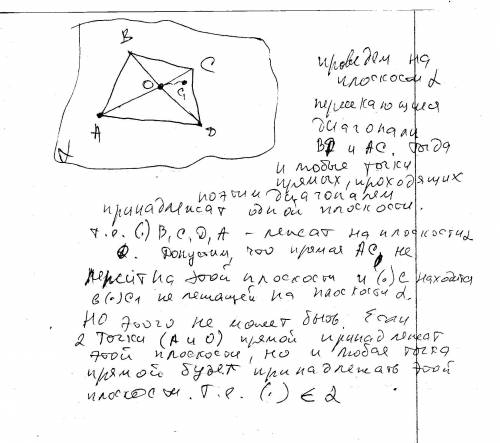 B
C
O
C₁
A
D
α
проведем на
плоскости α
пересекающиеся
диагонали
BD и AC. Тогда
и любые точки
прямых, проходящих
по этим диагоналям
принадлежат одной плоскости.
т.е. (·) B, C, D, A - лежат на плоскости α
. Допустим, что прямая AC, не
лежит на этой плоскости и (·) C находится
в (·) C₁ не лежащей на плоскости α.
Но этого не может быть. Если
2 точки (A и O) прямой принадлежат
этой плоскости, но и любая точка
прямой будет принадлежать этой
плоскости. Т.е. (·) ∈ α